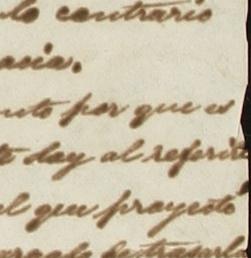 lo contrario
acia.
nto por que es
te day al referi
el que proyecto